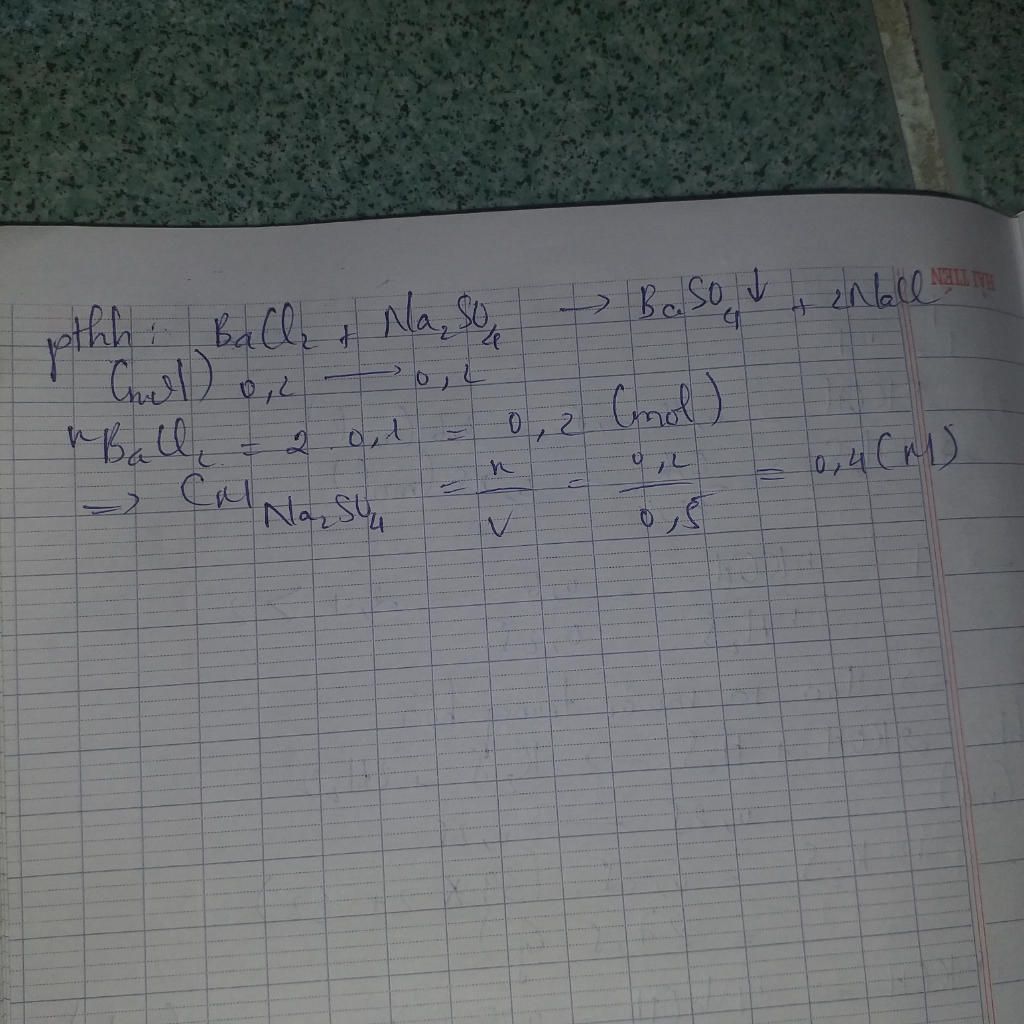 HẢI TIẾN
pthh: BaCl₂ + Na₂SO₄ → BaSO₄↓ + 2NaCl
(mol) 0,2 → 0,2
nBaCl₂ = 2 0,1 = 0,2 (mol)
=> CM Na₂SO₄ = n/V = 0,2/0,5 = 0,4 (M)